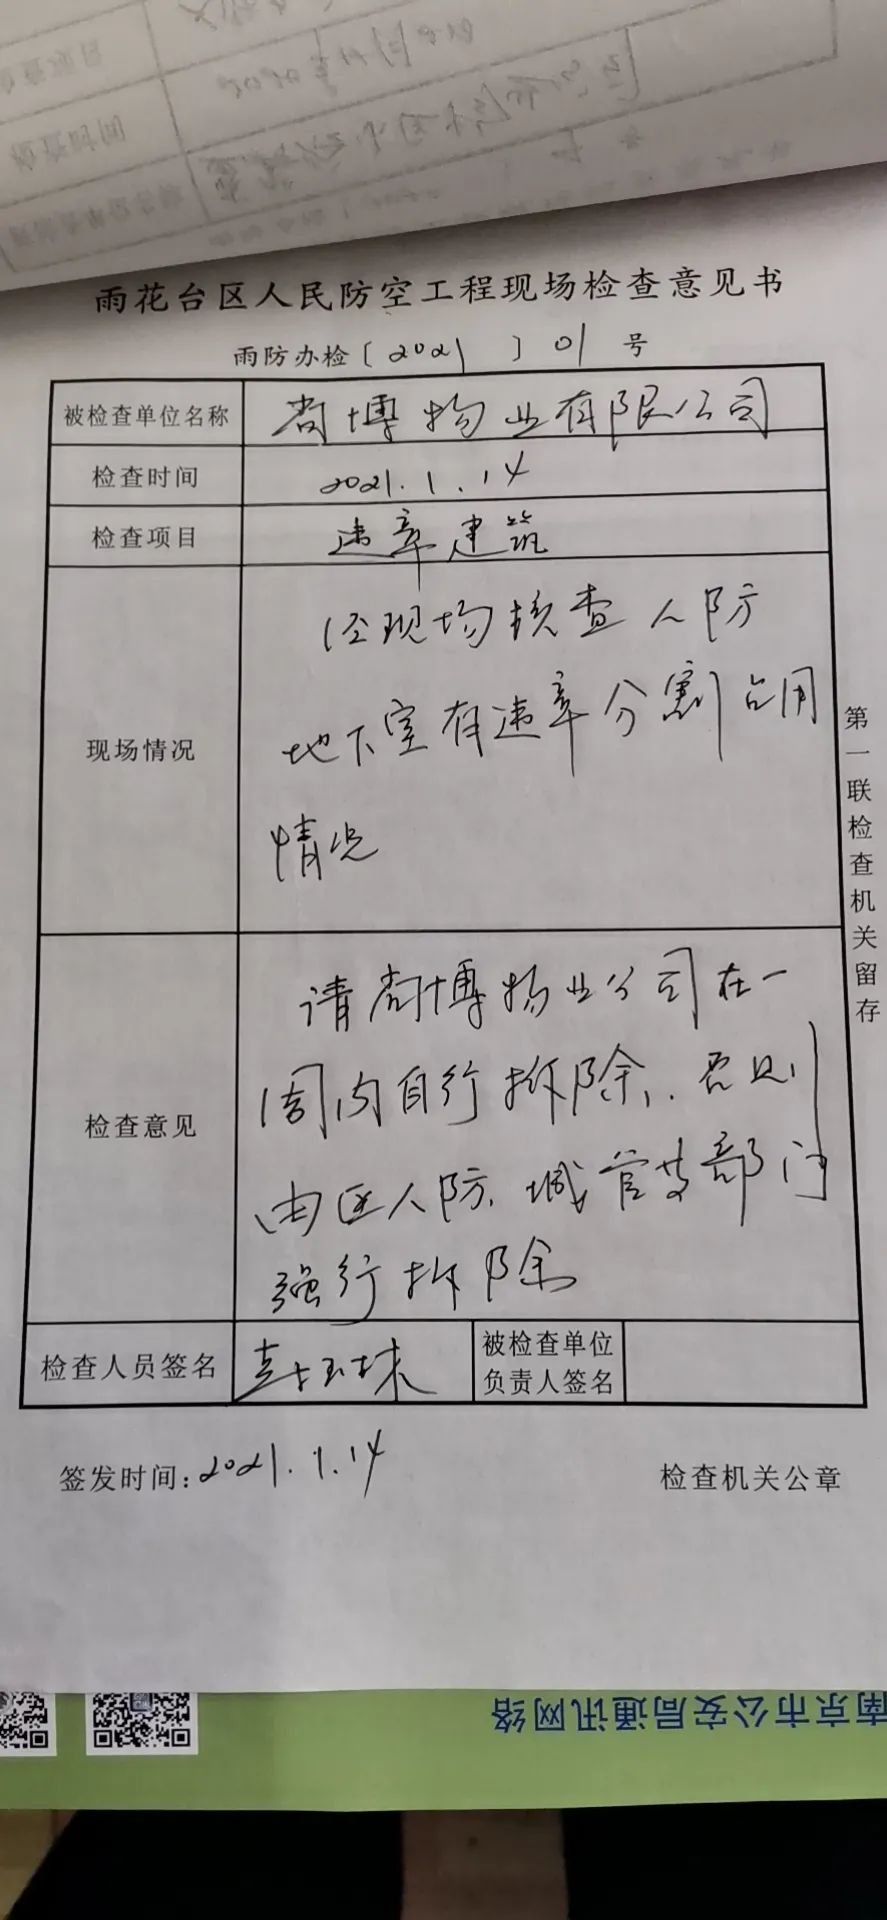 雨花台区人民防空工程现场检查意见书
雨防办检〔2021〕01号
被检查单位名称 尚博物业有限公司
检查时间 2021.1.14
检查项目 违章建筑
现场情况
经现场核查人防
地下室有违章分割占用
情况
检查意见
请尚博物业公司在一
周内自行拆除,否则
由区人防、城管等部门
强行拆除
检查人员签名
被检查单位
负责人签名
签发时间:2021.1.14
检查机关公章
第一联检查机关留存
南京市公安局通讯网络